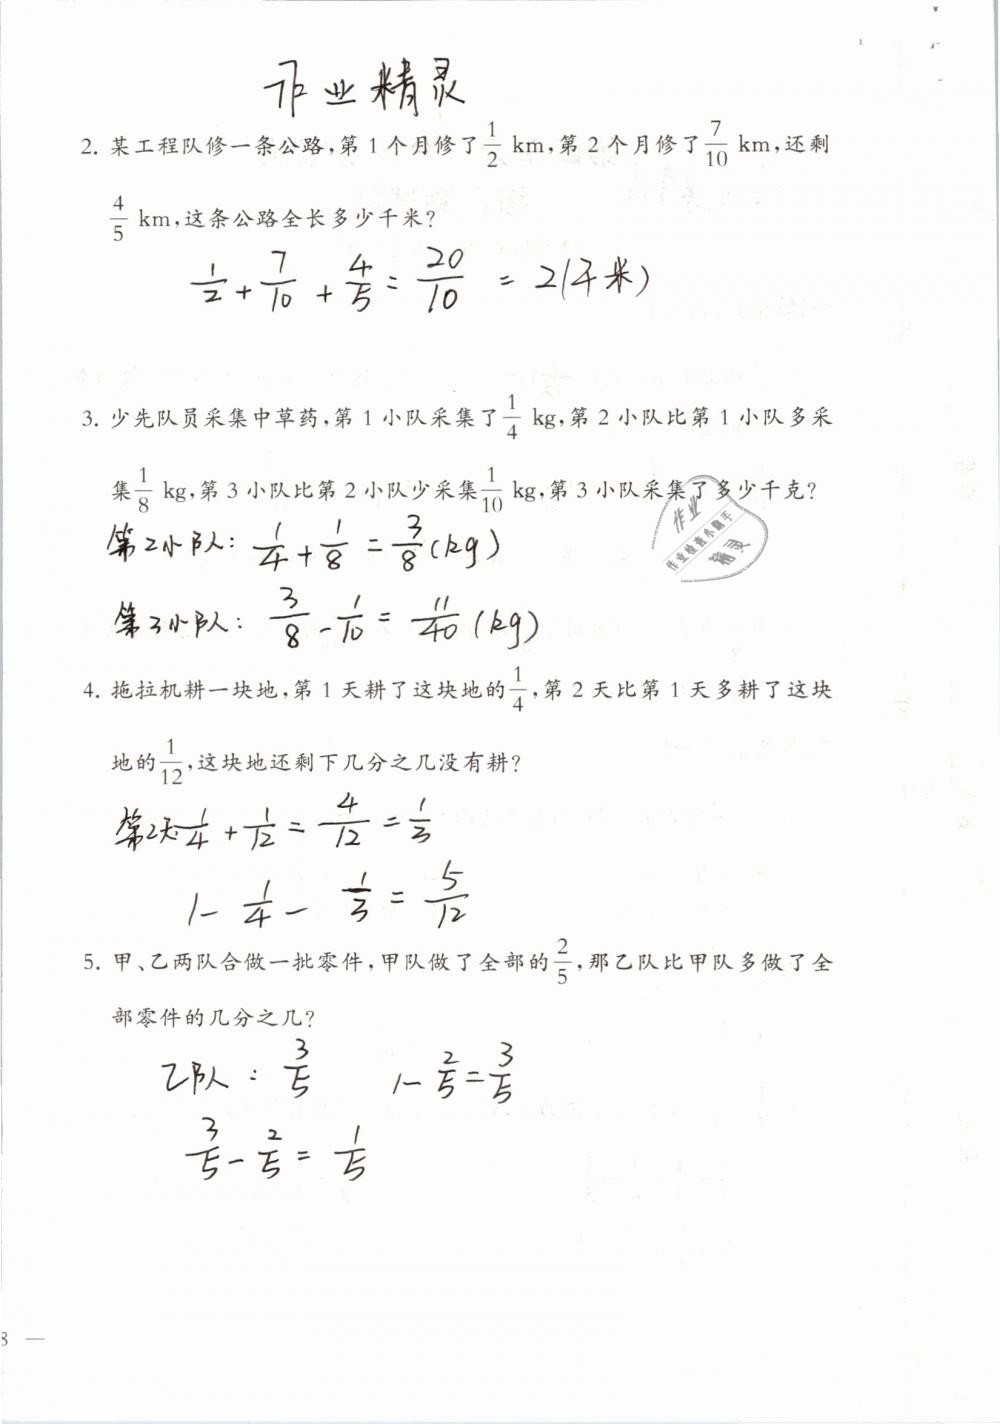 作业精灵
2. 某工程队修一条公路,第 1 个月修了 1/2 km,第 2 个月修了 7/10 km,还剩
4/5 km,这条公路全长多少千米?
1/2 + 7/10 + 4/5 = 20/10 = 2(千米)
3. 少先队员采集中草药,第 1 小队采集了 1/4 kg,第 2 小队比第 1 小队多采
集 1/8 kg,第 3 小队比第 2 小队少采集 1/10 kg,第 3 小队采集了多少千克?
作业
作业检查小助手
精灵
第2小队: 1/4 + 1/8 = 3/8 (kg)
第3小队: 3/8 - 1/10 = 11/40 (kg)
4. 拖拉机耕一块地,第 1 天耕了这块地的 1/4,第 2 天比第 1 天多耕了这块
地的 1/12,这块地还剩下几分之几没有耕?
第2天 1/4 + 1/12 = 4/12 = 1/3
1 - 1/4 - 1/3 = 5/12
5. 甲、乙两队合做一批零件,甲队做了全部的 2/5,那乙队比甲队多做了全
部零件的几分之几?
乙队: 3/5 1 - 2/5 = 3/5
3/5 - 2/5 = 1/5
8 —